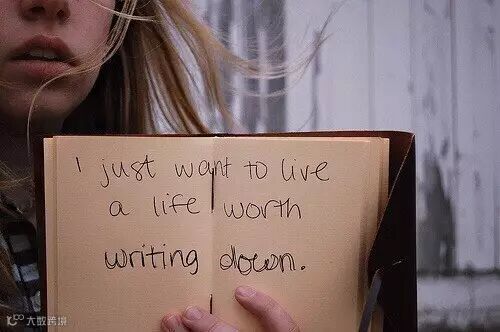 I just want to live
a life worth
writing down.
大数跨境